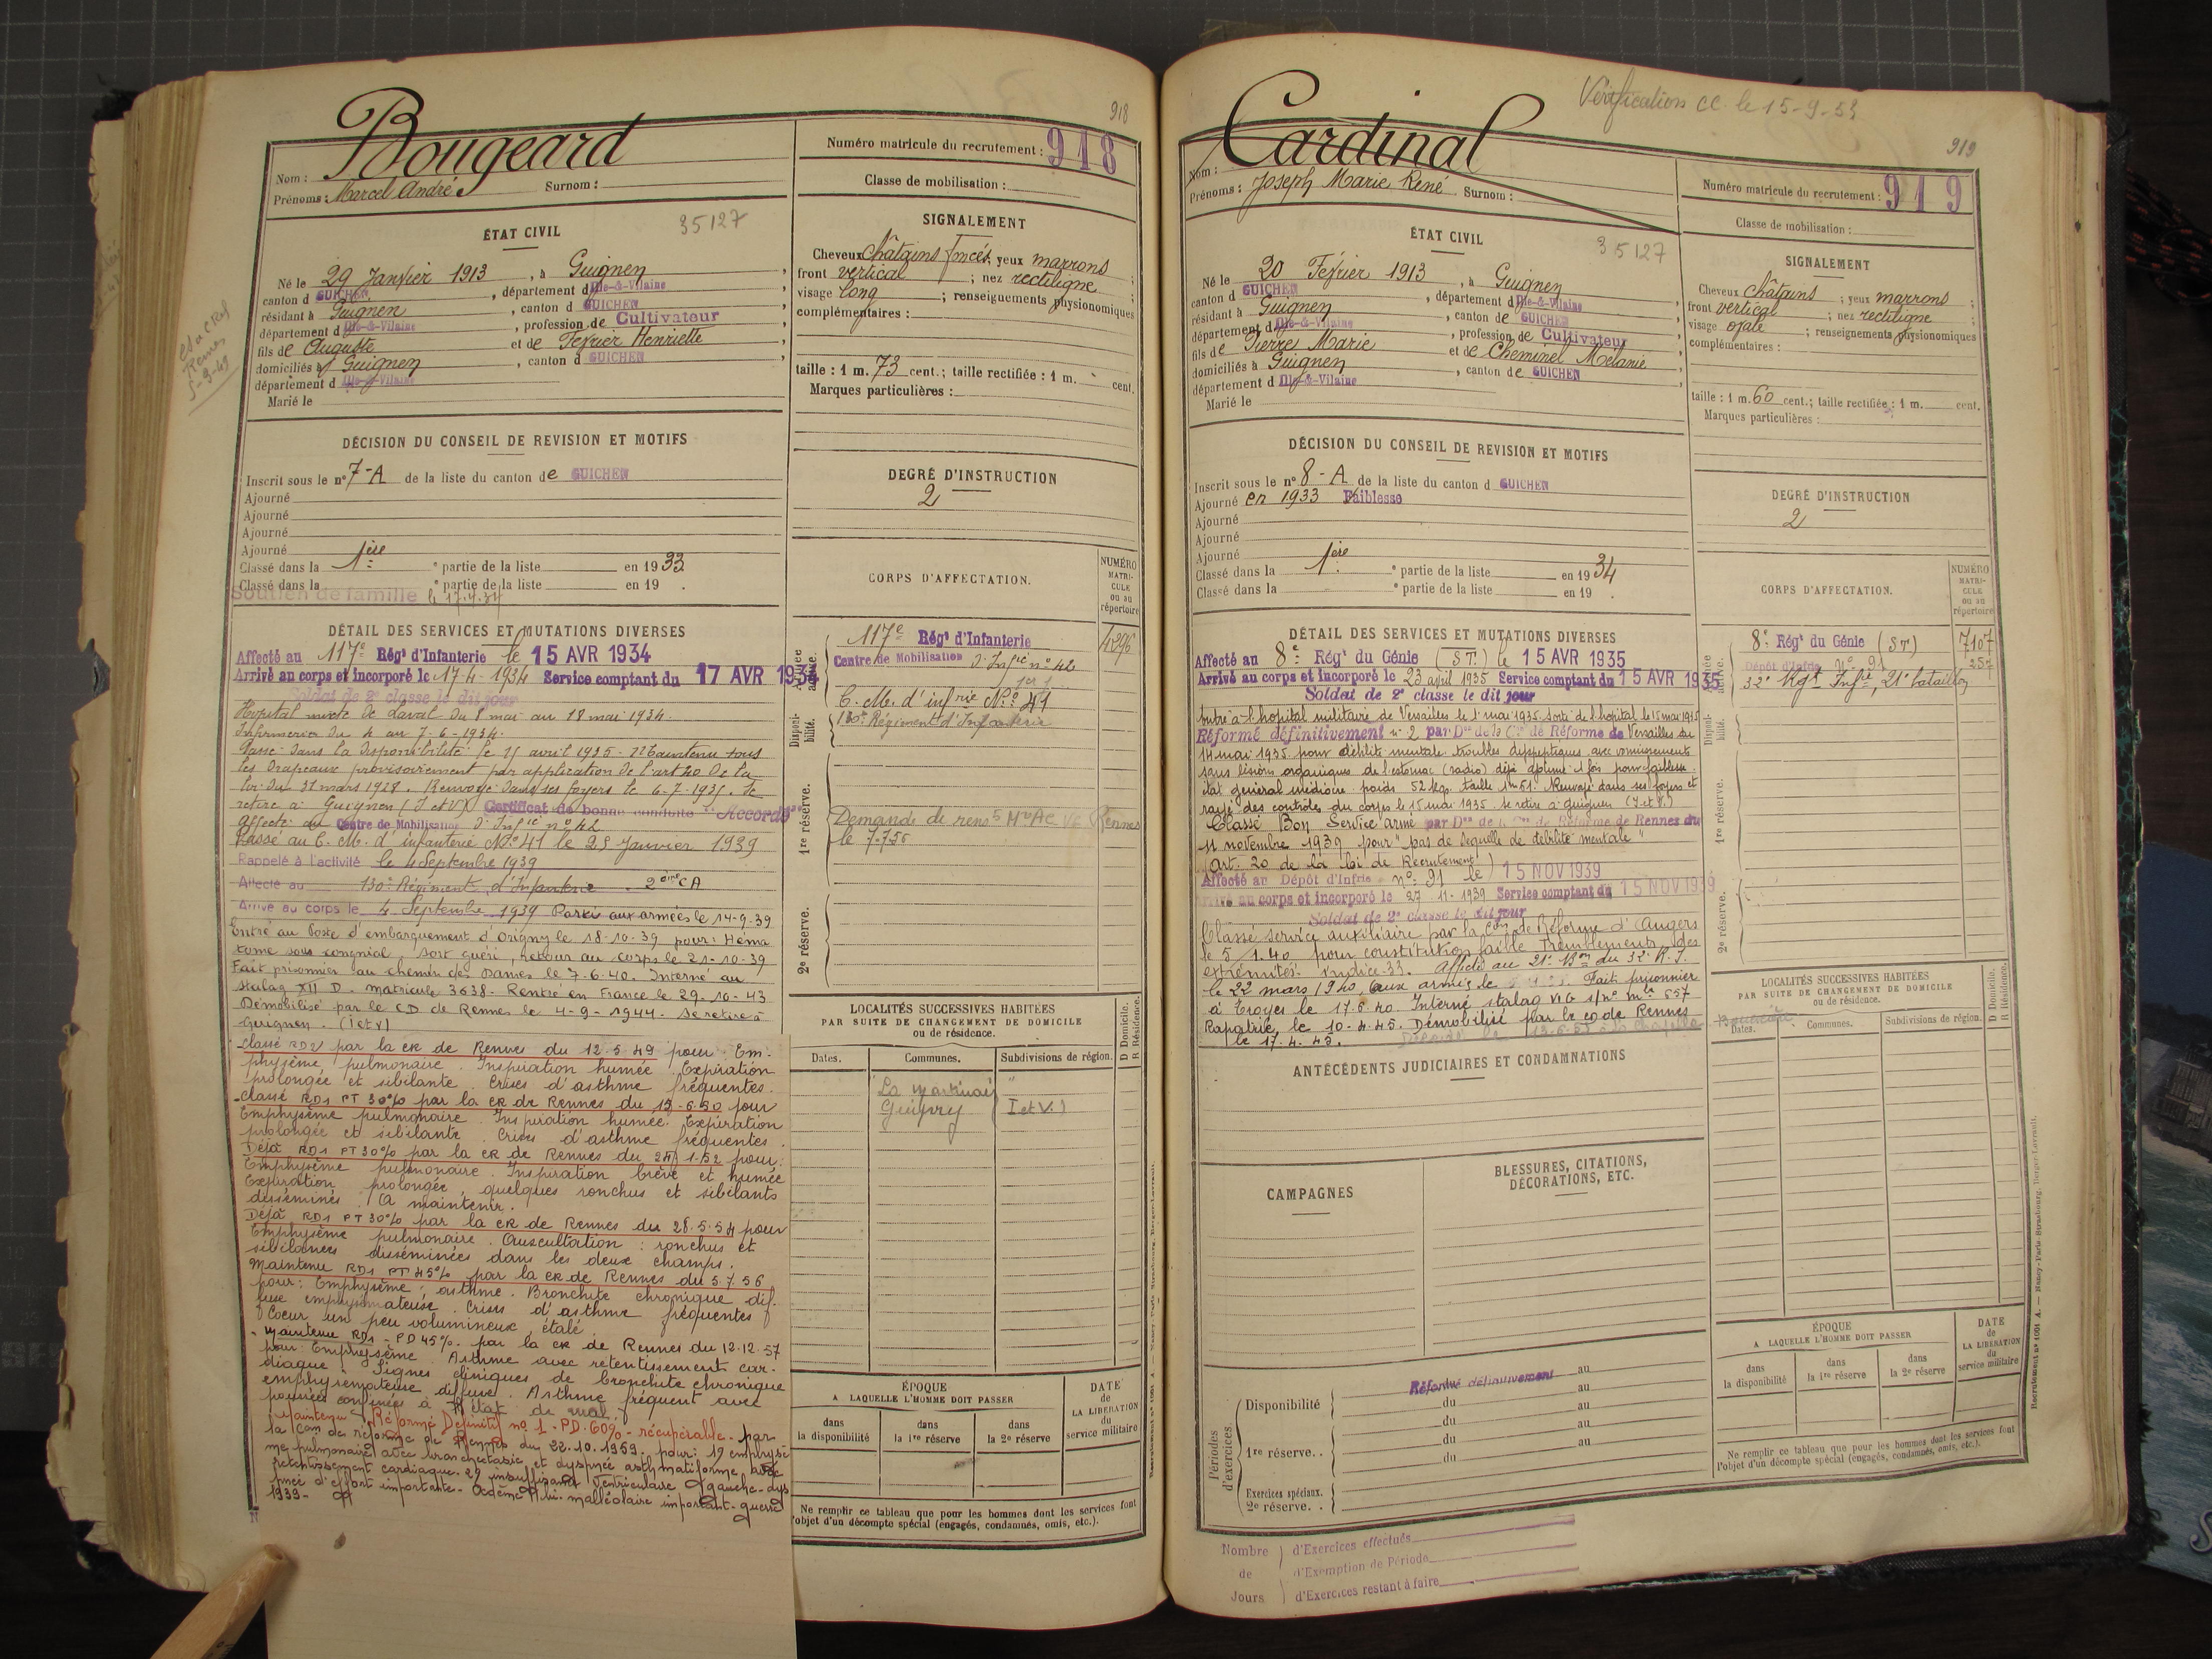 918
Bougeard
Nom :
Prénoms : Marcel André Surnom :
Numéro matricule du recrutement : 918
Classe de mobilisation :
35127
ÉTAT CIVIL
Né le 29 Janvier 1913, à Guignen,
canton d GUICHEN, département d'Ille-&-Vilaine
résidant à Guignen, canton de GUICHEN
département d'Ille-&-Vilaine, profession de Cultivateur
fils de Auguste et de Février Henriette
domiciliés à Guignen, canton d GUICHEN
département d Ille-&-Vilaine
Marié le
SIGNALEMENT
Cheveux châtains foncés; yeux marrons;
front vertical; nez rectiligne;
visage long; renseignements physionomiques
complémentaires :
taille : 1 m. 73 cent.; taille rectifiée : 1 m. cent.
Marques particulières :
DÉCISION DU CONSEIL DE REVISION ET MOTIFS
Inscrit sous le n° 7-A de la liste du canton de GUICHEN
Ajourné
Ajourné
Ajourné
Ajourné
Classé dans la 1ère partie de la liste en 1933
Classé dans la e partie de la liste en 19 .
Soutien de famille le 17.4.34
DEGRÉ D'INSTRUCTION
2
DÉTAIL DES SERVICES ET MUTATIONS DIVERSES
Affecté au 117e Régt d'Infanterie le 15 AVR 1934
Arrivé au corps et incorporé le 17-4-1934 Service comptant du 17 AVR 1934
Soldat de 2e classe le dit jour
Hopital mixte de Laval du 8 mai au 18 mai 1934.
Infirmerie du 4 au 7-6-1934.
Passé dans la disponibilité le 15 avril 1935 - Maintenu sous
les drapeaux provisoirement par application de l'art 40 de la
loi du 31 mars 1928. Renvoyé dans ses foyers le 6-7-1935. Se
retire à Guignen (I et V) Certificat de bonne conduite "Accordé"
Affecté au Centre de Mobilisation d'Infie n° 42
Passé au C. M. d'infanterie N° 41 le 25 Janvier 1939
Rappelé à l'activité le 4 Septembre 1939
Affecté au 130e Régiment d'Infanterie - 2ème CA
Arrivé au corps le 4 Septembre 1939 Parti aux armées le 14-9-39
Entré au Poste d'embarquement d'Origny le 18-10-39 pour: Héma
tome sous congnial, sort guéri, retour au corps le 21-10-39
Fait prisonnier au chemin des Dames le 7.6.40. Interné au
stalag XII D. matricule 3638- Rentré en France le 29-10-43
Démobilisé par le CD de Rennes le 4-9-1944. Se retire à
Guignen. (I et V)
Classé RD2 par la CR de Rennes du 12.5.49 pour: Em-
physème pulmonaire. Inspiration humée. Expiration
prolongée et sibilante. Crises d'asthme fréquentes.
Classé RD1 PT 30% par la CR de Rennes du 15-6-50 pour
Emphysème pulmonaire. Inspiration humée. Expiration
prolongée et sibilante. Crises d'asthme fréquentes.
Déjà RD1 PT 30% par la CR de Rennes du 1.52 pour:
Emphysème pulmonaire. Inspiration brève et humée
Expiration prolongée, quelques ronchus et sibilants
disséminés. (A maintenir.
Déjà RD1 PT 30% par la CR de Rennes du 28.5.54 pour
Emphysème pulmonaire. Auscultation: ronchus et
sibilances disséminées dans les deux champs.
Maintenu RD1 PT 45% par la CR de Rennes du 5.7.56
pour: Emphysème, asthme. Bronchite chronique dif-
fuse emphysémateuse. Crises d'asthme fréquentes
Coeur un peu volumineux, étalé
Maintenu RD1 - PD 45%. par la CR de Rennes du 12.12.57
pour: Emphysème. Asthme avec retentissement car-
diaque. Signes cliniques de bronchite chronique
emphysémateuse diffuse. Asthme fréquent avec
poussées confinées à l'état de mal.
Maintenu Réformé Définitif n° 1 - PD. 60% - récupérable - par
la Com de réforme de Rennes du 22.10.1959. pour: 1° emphysè-
me pulmonaire avec bronchectasie, et dyspnée asthmatiforme, avec
retentissement cardiaque. 2° insuffisance ventriculaire gauche - dys
pnée d'effort importante - Oedème bi-malléolaire important - guerre
1939-
CORPS D'AFFECTATION.
NUMÉRO MATRICULE ou au répertoire
Armée active.
117e Régt d'Infanterie 4296
Centre de Mobilisation d'Infie n° 42
C. M. d'infrie N° 41
130e Régiment d'Infanterie
Disponibilité.
1re réserve.
Demande de rens Rennes
le 7.7.56
2e réserve.
LOCALITÉS SUCCESSIVES HABITÉES
PAR SUITE DE CHANGEMENT DE DOMICILE
ou de résidence.
Dates. Communes. Subdivisions de région. D Domicile. R Résidence.
Guipry I et V.
ÉPOQUE
A LAQUELLE L'HOMME DOIT PASSER
dans la disponibilité dans la 1re réserve dans la 2e réserve
DATE de LA LIBÉRATION du service militaire
Ne remplir ce tableau que pour les hommes dont les services font
l'objet d'un décompte spécial (engagés, condamnés, omis, etc.).
Rennes
5-9-49
Vérification CC. le 15-9-53
919
Cardinal
Nom :
Prénoms : Joseph Marie René Surnom :
Numéro matricule du recrutement : 919
Classe de mobilisation :
35127
ÉTAT CIVIL
Né le 20 Février 1913, à Guignen
canton d GUICHEN, département d'Ille-&-Vilaine
résidant à Guignen, canton de GUICHEN
département d'Ille-&-Vilaine, profession de Cultivateur
fils de Pierre Marie et de Cheminel Mélanie
domiciliés à Guignen, canton de GUICHEN
département d Ille-&-Vilaine
Marié le
SIGNALEMENT
Cheveux châtains; yeux marrons
front vertical; nez rectiligne
visage ovale; renseignements physionomiques
complémentaires :
taille : 1 m. 60 cent.; taille rectifiée : 1 m. cent.
Marques particulières :
DÉCISION DU CONSEIL DE REVISION ET MOTIFS
Inscrit sous le n° 8-A de la liste du canton d GUICHEN
Ajourné en 1933 Faiblesse
Ajourné
Ajourné
Ajourné
Classé dans la 1ère partie de la liste en 1934
Classé dans la e partie de la liste en 19 .
DEGRÉ D'INSTRUCTION
2
DÉTAIL DES SERVICES ET MUTATIONS DIVERSES
Affecté au 8e Régt du Génie (S.T.) le 15 AVR 1935
Arrivé au corps et incorporé le 23 avril 1935 Service comptant du 15 AVR 1935
Soldat de 2e classe le dit jour
Entré à l'hopital militaire de Versailles le 1 mai 1935 sorti de l'hopital le 15 mai 1935
Réformé définitivement n° 2 par Don de la Con de Réforme de Versailles du
14 mai 1935 pour débilité mentale troubles dyspeptiques avec vomissements
sans lésions organiques de l'estomac (radio) déjà ajourné 1 fois pour faiblesse
état général médiocre poids 52 kgs taille 1m61. Renvoyé dans ses foyers et
rayé des contrôles du corps le 15 mai 1935. Se retire à Guignen (I. et V.)
Classé Bon Service armé par Don de la Con de Réforme de Rennes du
11 novembre 1939 pour "pas de séquelle de débilité mentale"
(Art. 20 de la loi de Recrutement) 15 NOV 1939
Affecté au Dépôt d'Infrie n° 91 le
Arrivé au corps et incorporé le 27 11-1939 Service comptant du 15 NOV 1939
Soldat de 2e classe le dit jour
Classé service auxiliaire par la Con de Réforme d'Angers
le 5 1.40 pour constitution faible. Tremblements des
extrémités. Indice 33. Affecté au 21e Bon du 32e R.I.
le 22 mars 1940, aux armées le Fait prisonnier
à Troyes le 17.6.40. Interné stalag VI G s/n° mle 557
Rapatrié le 10-4-45. Démobilisé par le CD de Rennes
le 17.4.45.
CORPS D'AFFECTATION.
NUMÉRO MATRICULE ou au répertoire
Armée active.
8e Régt du Génie (S.T.) 7107
Dépôt d'Infrie N° 91 257
32e Rgt Infrie, 21e bataillon
Disponibilité.
1re réserve.
2e réserve.
ANTÉCÉDENTS JUDICIAIRES ET CONDAMNATIONS
CAMPAGNES
BLESSURES, CITATIONS,
DÉCORATIONS, ETC.
LOCALITÉS SUCCESSIVES HABITÉES
PAR SUITE DE CHANGEMENT DE DOMICILE
ou de résidence.
Dates. Communes. Subdivisions de région. D Domicile. R Résidence.
Périodes d'exercices
Disponibilité Réformé définitivement au
du au
du au
1re réserve. . du au
du
Exercices spéciaux.
2e réserve. .
ÉPOQUE
A LAQUELLE L'HOMME DOIT PASSER
dans la disponibilité dans la 1re réserve dans la 2e réserve
DATE de LA LIBÉRATION du service militaire
Ne remplir ce tableau que pour les hommes dont les services font
l'objet d'un décompte spécial (engagés, condamnés, omis, etc.).
Nombre de Jours
d'Exercices effectués
d'Exemption de Période
d'Exercices restant à faire
Recrutement n° 1001 A. — Nancy-Paris-Strasbourg, Berger-Levrault.